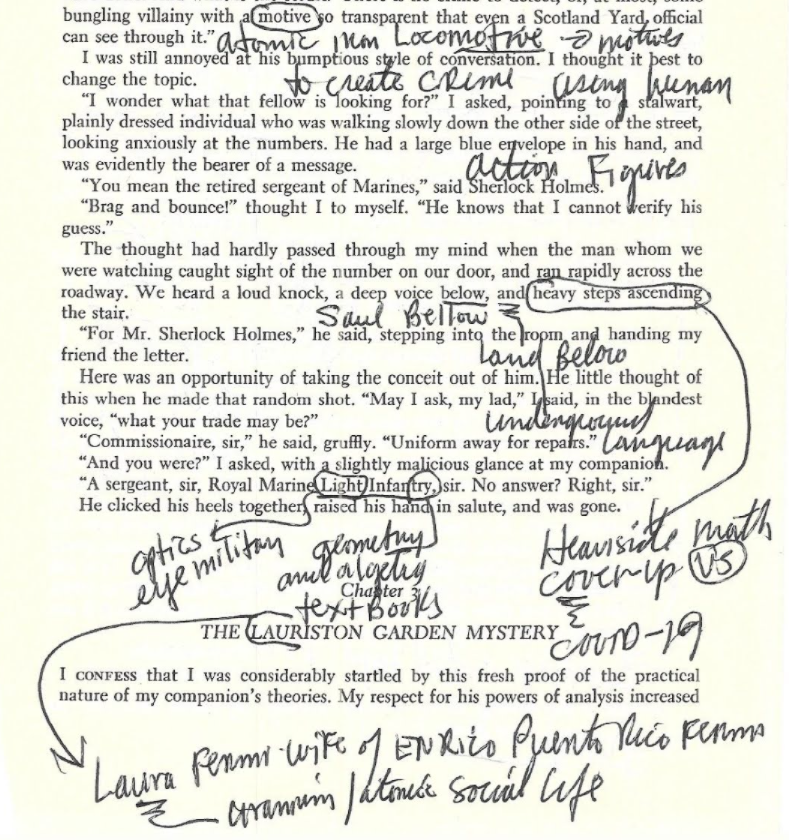 bungling villainy with a motive so transparent that even a Scotland Yard official
can see through it."
atomic Iron Locomotive → motives
I was still annoyed at his bumptious style of conversation. I thought it best to
change the topic.
to create CRIME using human
"I wonder what that fellow is looking for?" I asked, pointing to a stalwart,
plainly dressed individual who was walking slowly down the other side of the street,
looking anxiously at the numbers. He had a large blue envelope in his hand, and
was evidently the bearer of a message.
action Figures
"You mean the retired sergeant of Marines," said Sherlock Holmes.
"Brag and bounce!" thought I to myself. "He knows that I cannot verify his
guess."
The thought had hardly passed through my mind when the man whom we
were watching caught sight of the number on our door, and ran rapidly across the
roadway. We heard a loud knock, a deep voice below, and heavy steps ascending
the stair.
Saul Bellow
"For Mr. Sherlock Holmes," he said, stepping into the room and handing my
friend the letter.
Land Below
Here was an opportunity of taking the conceit out of him. He little thought of
this when he made that random shot. "May I ask, my lad," I said, in the blandest
voice, "what your trade may be?"
Underground
"Commissionaire, sir," he said, gruffly. "Uniform away for repairs."
Language
"And you were?" I asked, with a slightly malicious glance at my companion.
"A sergeant, sir, Royal Marine Light Infantry, sir. No answer? Right, sir."
He clicked his heels together, raised his hand in salute, and was gone.
optics
eye military
geometry
and algebra
text Books
Heaviside math
cover-up VS
COVID-19
Chapter 3
THE LAURISTON GARDEN MYSTERY
I CONFESS that I was considerably startled by this fresh proof of the practical
nature of my companion's theories. My respect for his powers of analysis increased
Laura Fermi wife of ENRICO Puerto Rico Fermi
uranium / atomic Social Life